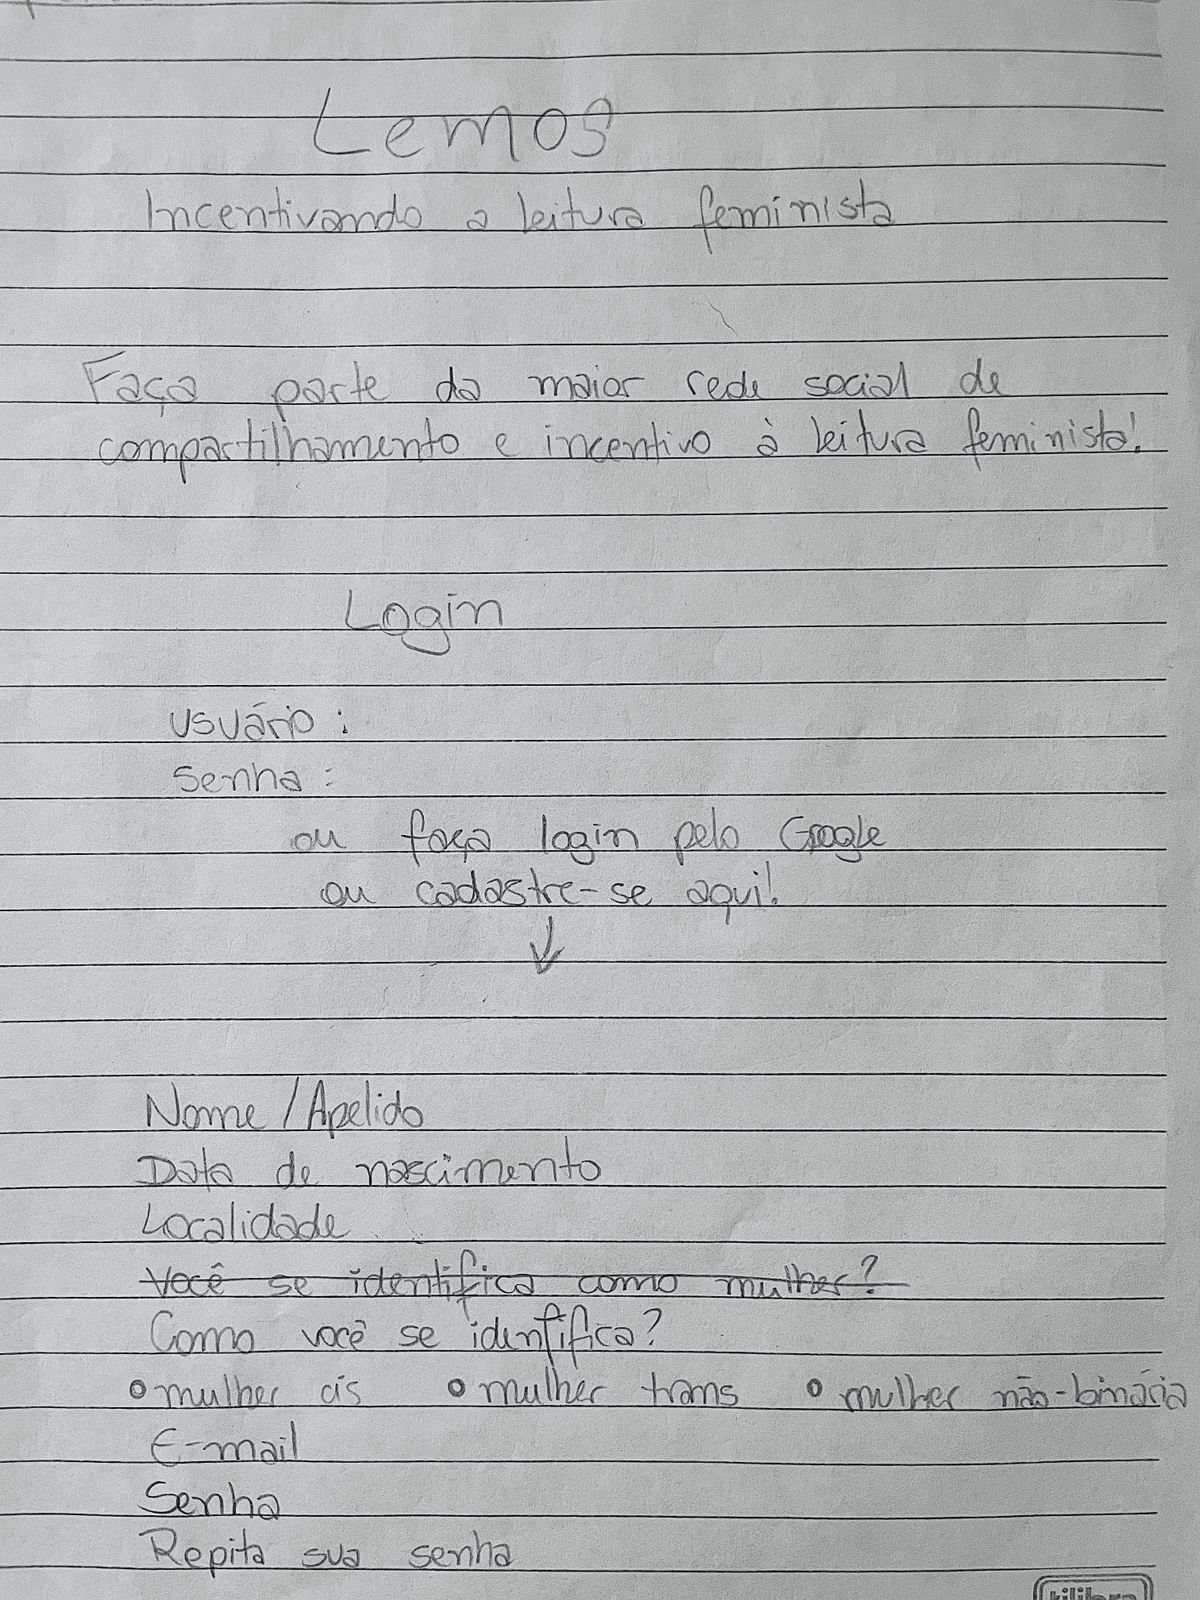 Lemos
Incentivando a leitura feminista
Faça parte da maior rede social de
compartilhamento e incentivo à leitura feminista!
Login
usuário :
senha :
ou faça login pelo Google
ou cadastre-se aqui!
Nome / Apelido
Data de nascimento
Localidade
Você se identifica como mulher?
Como você se identifica?
mulher cis mulher trans mulher não-binária
E-mail
Senha
Repita sua senha
tilibra